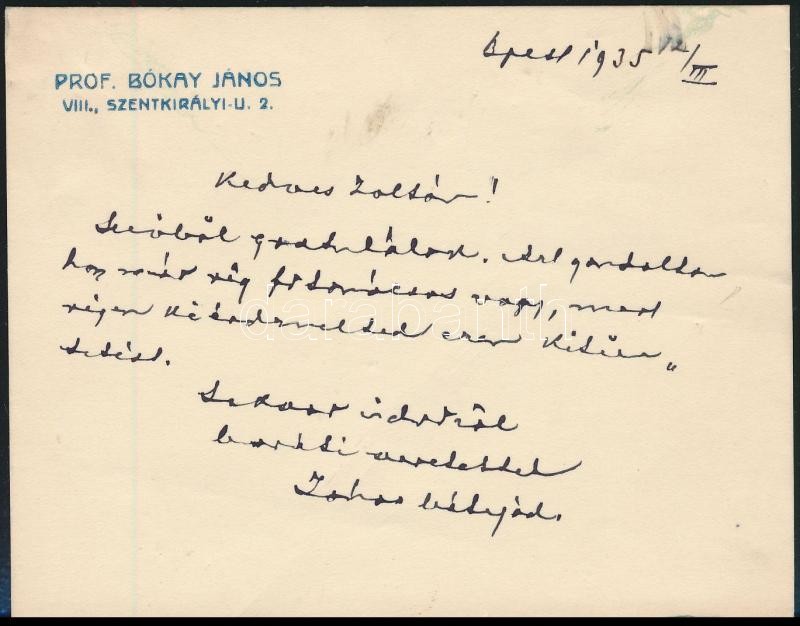 Bpest 1935 12/III
PROF. BÓKAY JÁNOS
VIII., SZENTKIRÁLYI-U. 2.
Kedves Zoltán!
Szívből gratulálok. Azt gondoltam
hogy már rég főtanácsos vagy, mert
régen kiérdemelted ezen kitün„
tetést.
Sokszor üdvözöl
baráti szeretettel
János bátyád.
darabanth